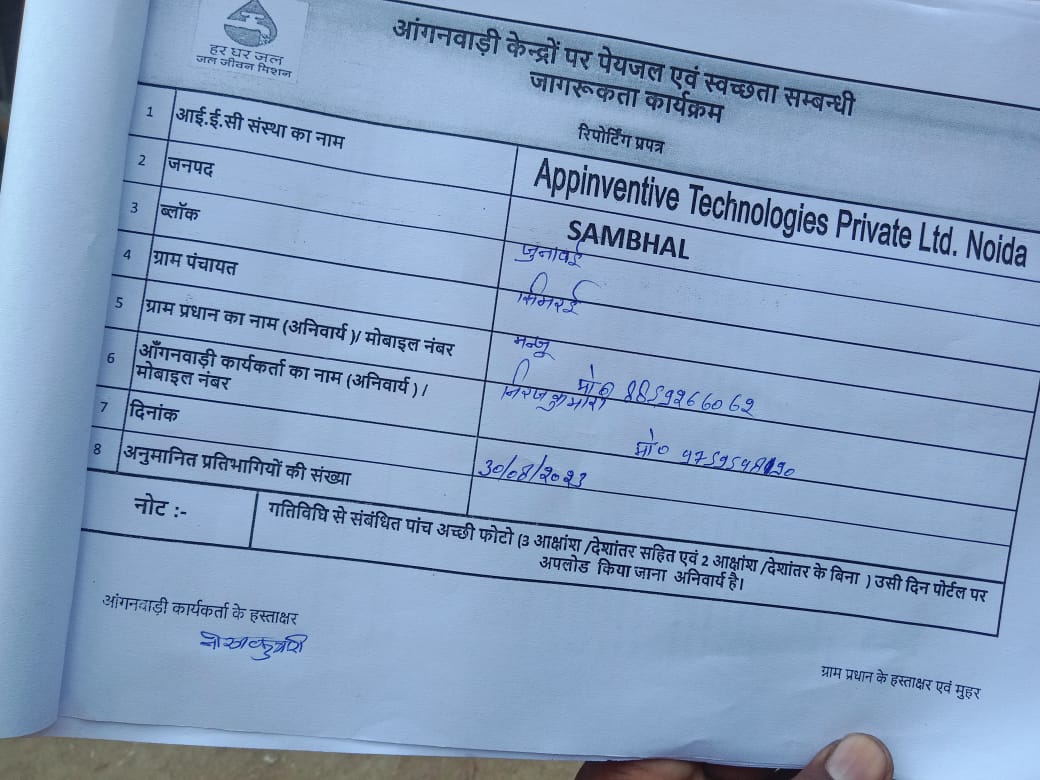 हर घर जल
जल जीवन मिशन
आंगनवाड़ी केन्द्रों पर पेयजल एवं स्वच्छता सम्बन्धी
जागरूकता कार्यक्रम
रिपोर्टिंग प्रपत्र
1 आई.ई.सी संस्था का नाम Appinventive Technologies Private Ltd. Noida
2 जनपद SAMBHAL
3 ब्लॉक जुनावई
4 ग्राम पंचायत सिमरई
5 ग्राम प्रधान का नाम (अनिवार्य )/ मोबाइल नंबर मन्जू
मो० 8859266062
6 आँगनवाड़ी कार्यकर्ता का नाम (अनिवार्य ) /
मोबाइल नंबर
मो०
7 दिनांक 30/08/2023
8 अनुमानित प्रतिभागियों की संख्या
नोट :- गतिविधि से संबंधित पांच अच्छी फोटो (3 आक्षांश /देशांतर सहित एवं 2 आक्षांश /देशांतर के बिना ) उसी दिन पोर्टल पर
अपलोड किया जाना अनिवार्य है।
आंगनवाड़ी कार्यकर्ता के हस्ताक्षर
ग्राम प्रधान के हस्ताक्षर एवं मुहर